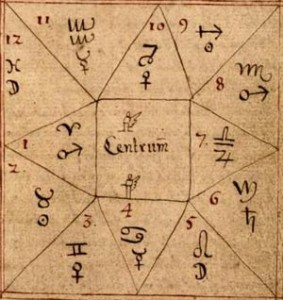 11
10
9
12
♓
☽
♀
8
♏
♂
1
♈
♂
Centrum̄
7.
♎
♃
2
♉
☉
6
♄
3.
♊
♀
4
♋
☿
5
♌
☽